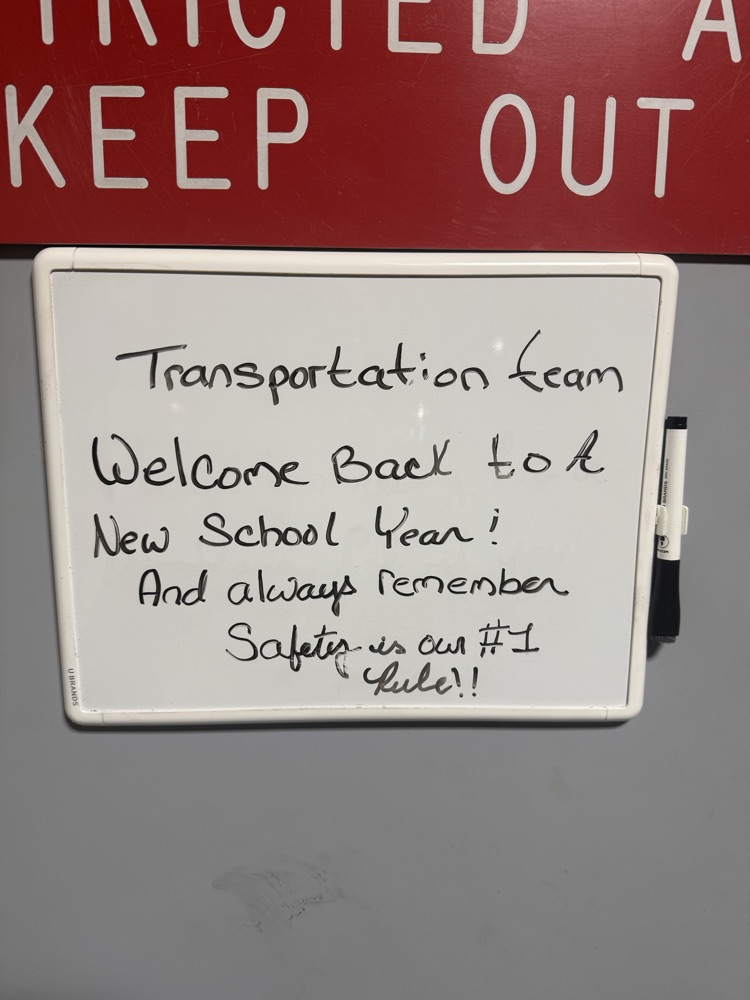 TRICTED A
KEEP OUT
Transportation team
Welcome Back to A
New School Year!
And always remember
Safety is our #1
Rule!!
U BRANDS